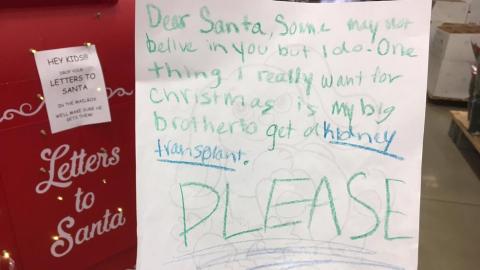 HEY KIDS!!
DROP YOUR
LETTERS TO
SANTA
IN THE MAILBOX
WE'LL MAKE SURE HE
GETS THEM!
Letters
to
Santa
Dear Santa, Some may not
belive in you but I do. One
thing I really want for
christmas is my big
brother to get a kidney
transplant.
PLEASE